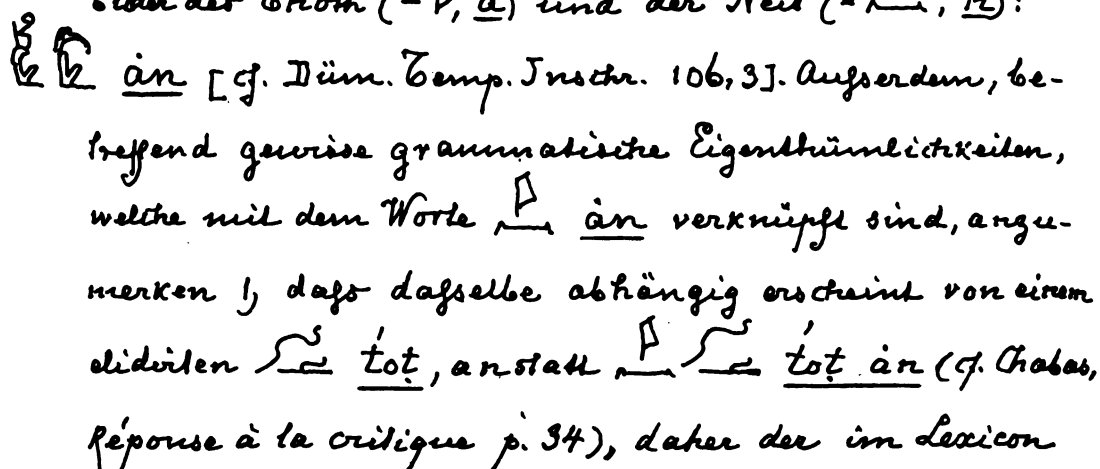 oder des Chom (-, a) und der Neit (-, n):
ȧn [cf. Düm. Temp. Inschr. 106, 3]. Aufserdem, be-
treffend gewisse grammatische Eigenthümlichkeiten,
welche mit dem Worte ȧn verknüpft sind, anzu-
merken 1) dafs dafselbe abhängig erscheint von einem
elidirten t́oṭ, anstatt t́oṭ ȧn (cf. Chabas,
Réponse à la critique p. 34), daher der im Lexicon